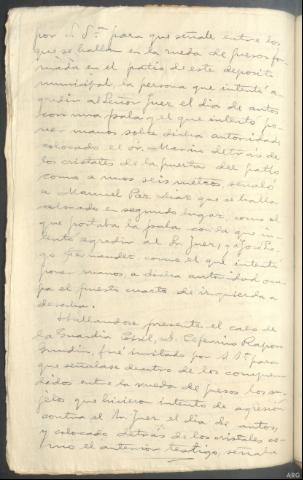 por S. Sª para que señale entre los
que se hallan en la rueda de presos for
mada en el patio de este deposito
municipal, la persona que intentó a
gredir al Señor Juez el dia de autos
con una pala y el que intentó po
ner manos sobre dicha autoridad,
colocado el Sr. Marin detrás de
los cristales de la puerta del patio
como a unos seis metros señaló
a Manuel Paz que se halla
colocado en segundo lugar, como el
que portaba la pala con la que in
tentó agredir al Sr. Juez, y a
Fernandez como el que intentó
poner manos a dicha autoridad ocu
pa el puesto cuarto de izquierda a
derecha.
Hallandose presente el cabo de
la Guardia Civil, D. Ceferino
fué invitado por S. Sª para
que señalase dentro de los compren
didos entre la rueda de presos los su
jetos que hicieron intento de agresion
contra el Sr. Juez el dia de autos,
y colocado detrás de los cristales co
mo el anterior testigo, señala
ARG